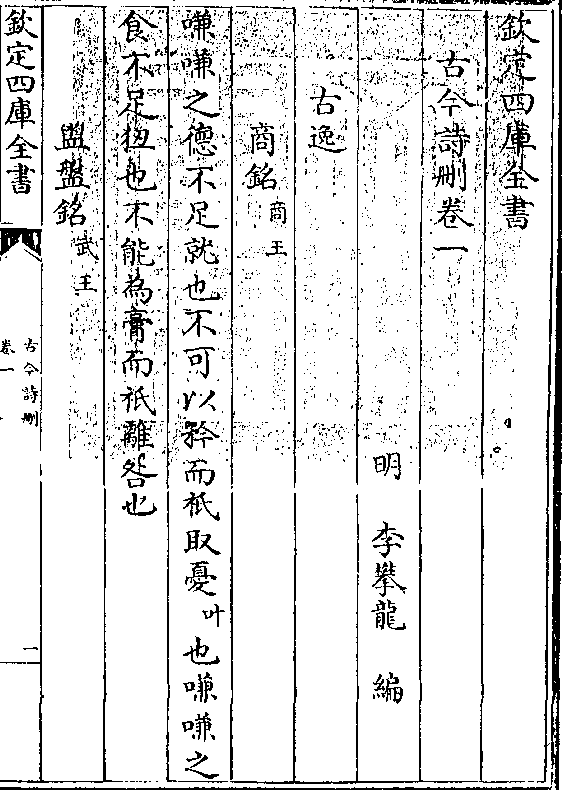 欽定四庫全書
古今詩刪卷一
明 李攀龍 編
古逸
商銘 商王
嗛嗛之德不足就也不可以矜而祗取憂叶也嗛嗛之
食不足狃也不能為膏而祗離咎也
盥盤銘 武王
欽定四庫全書
古今詩刪
卷一
一